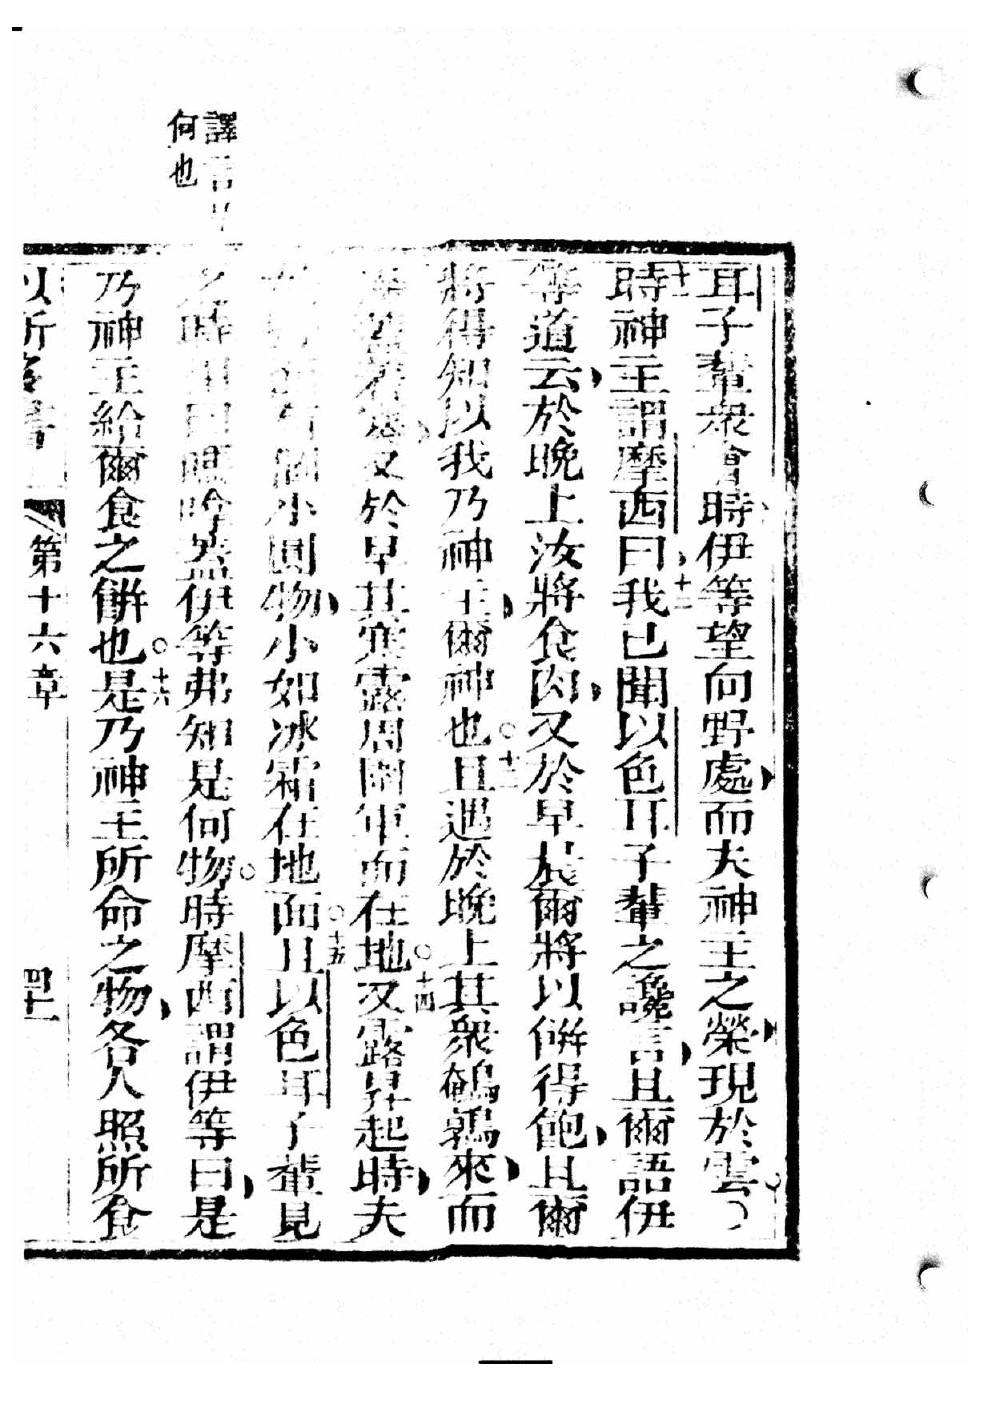 譯言
何也
耳子輩衆會時伊等望向野處而夫神主之榮現於雲
十一時神主謂摩西曰十二我已聞以色耳子輩之讒言且爾語伊
等道云於晚上汝將食肉又於早晨爾將以餅得飽且爾
將得知以我乃神主爾神也○十三且遇於晚上其衆鵪鶉來而
又於早其寒露周圍軍而在地○十四又露昇起時夫
有個小圓物小如冰霜在地面○十五且以色耳子輩見
之時曰嗎哈蓋伊等弗知是何物○時摩西謂伊等曰是
乃神主給爾食之餅也○十六是乃神主所命之物各人照所食
第十六章
四十一